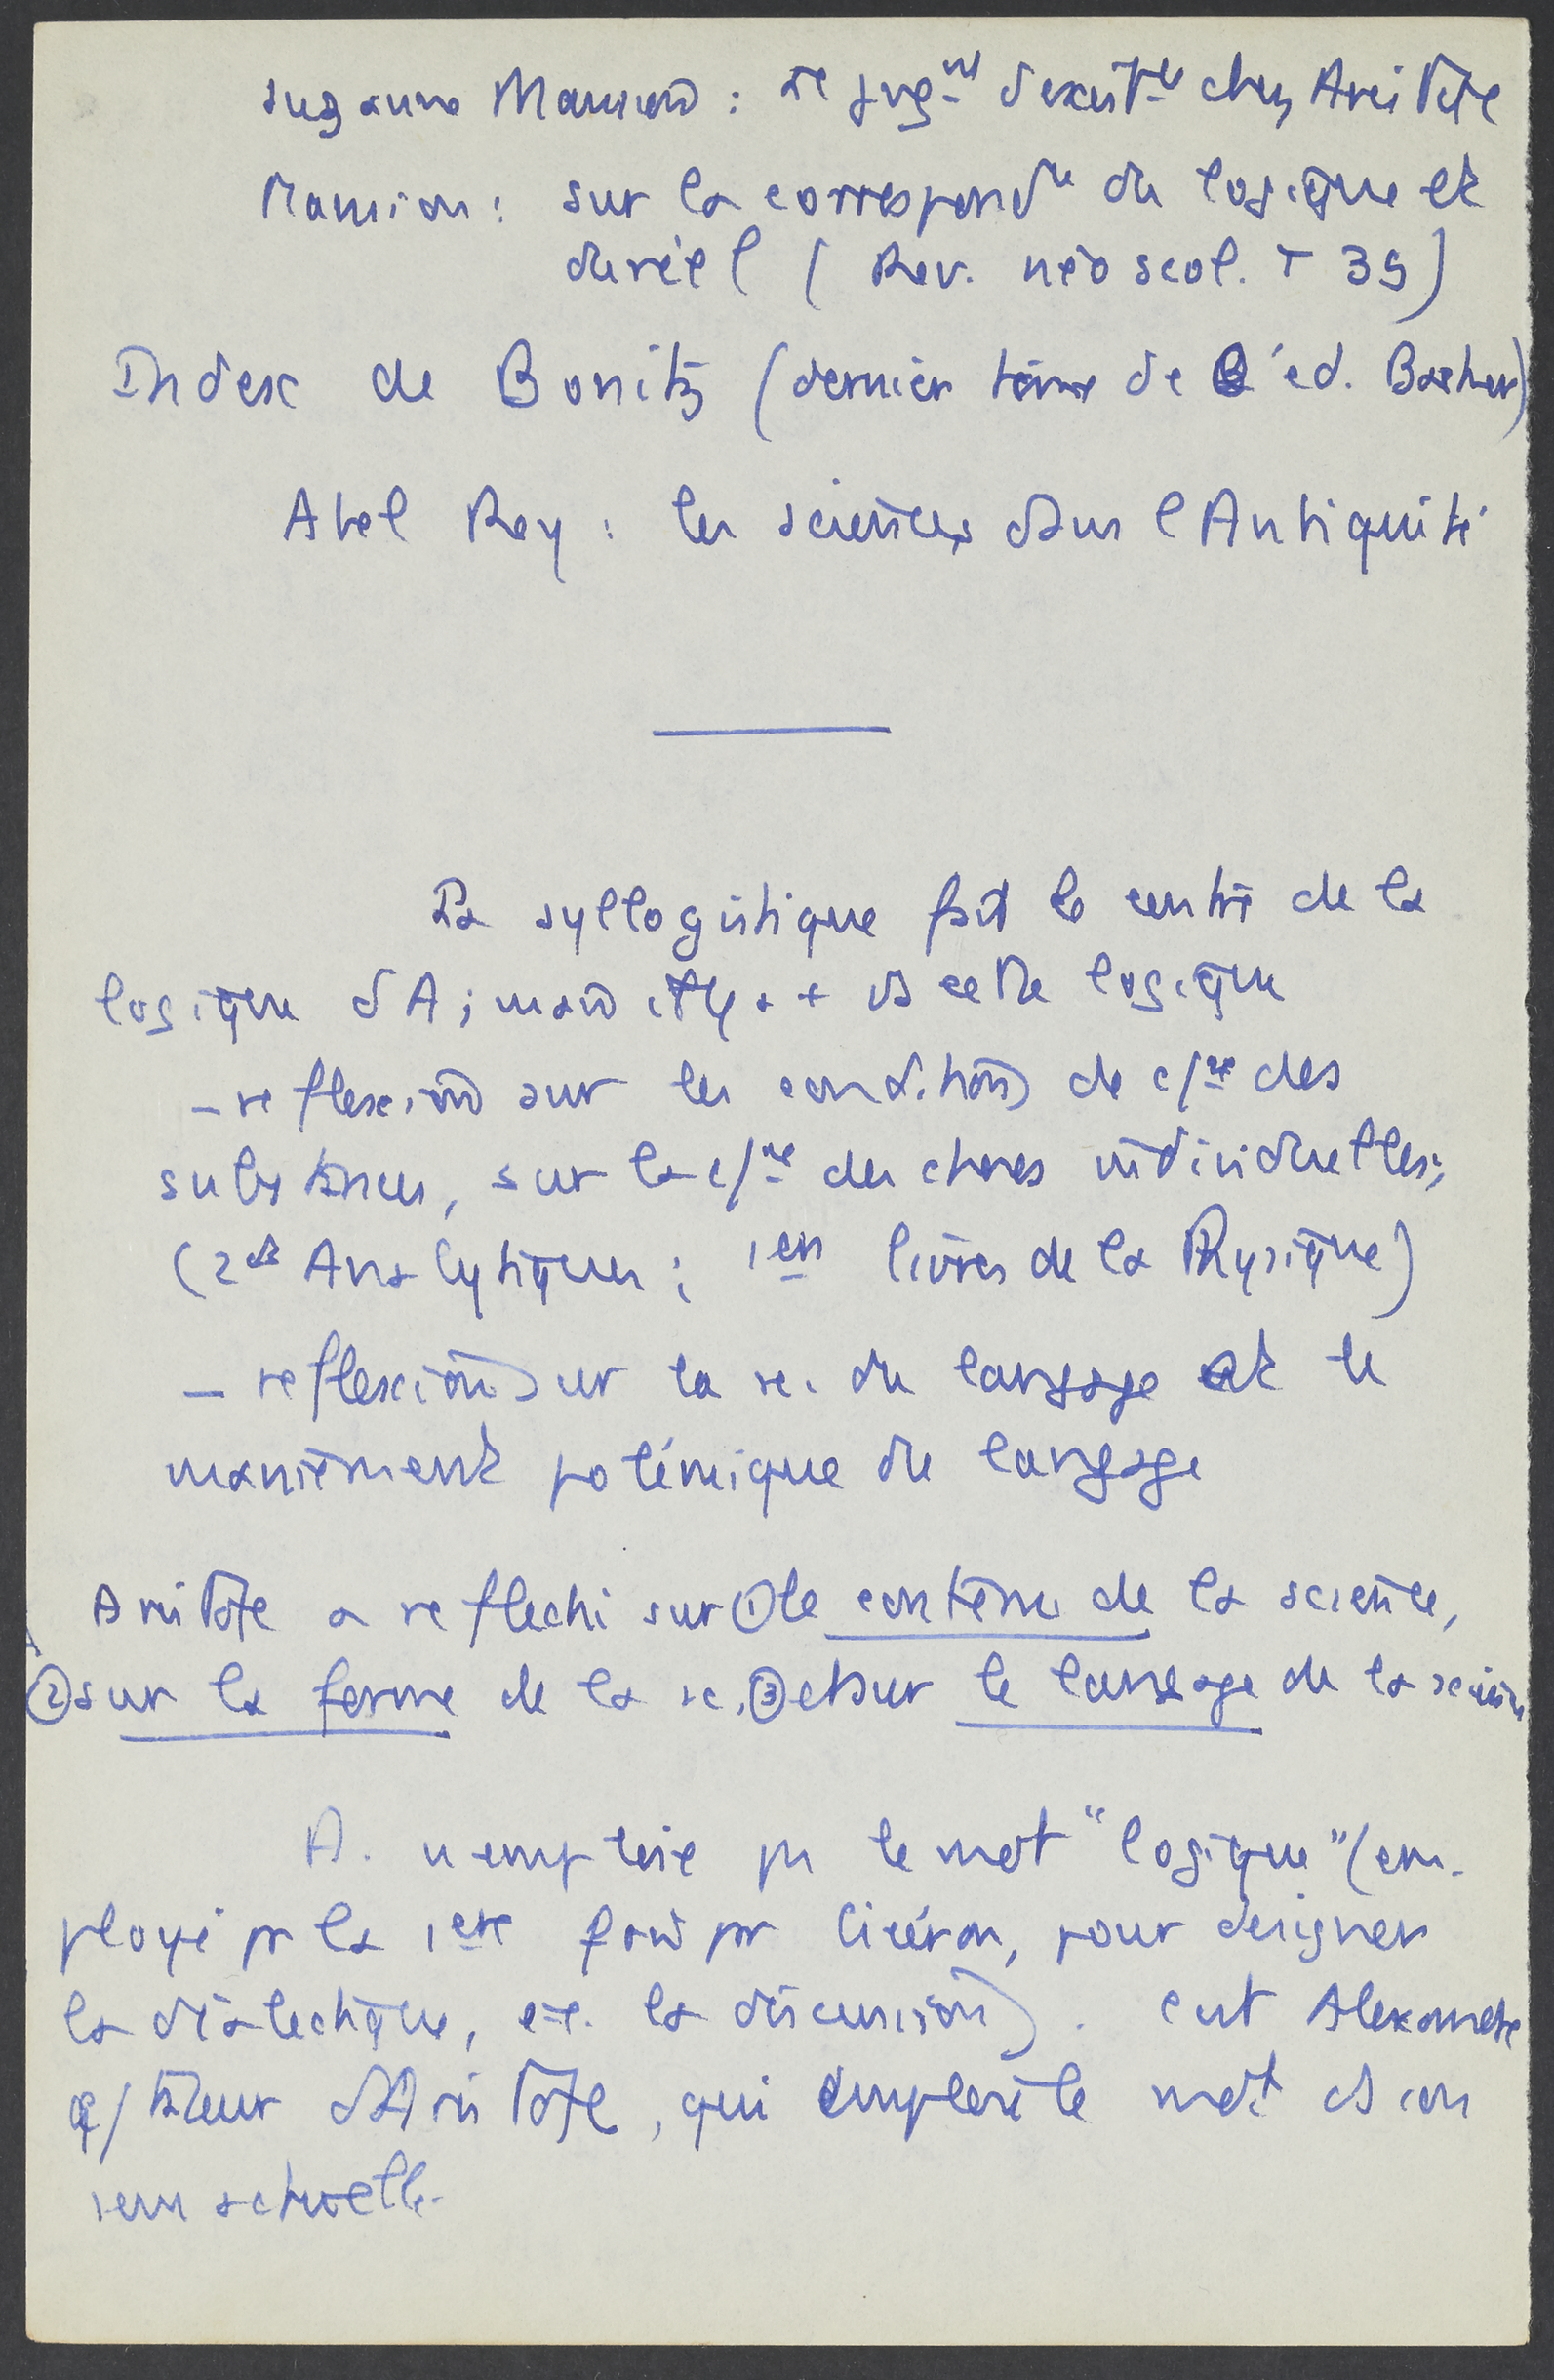 Suzanne Mansion : Le jugmt d'existce chez Aristote
Mansion : sur la correspondce du logique et
du réel (Rev. néoscol. T 39)
Index de Bonitz (dernier tome de l'éd. Becker)
Abel Rey : les sciences dans l'Antiquité
La syllogistique fait le centre de la
logique d'A ; mais il y a + ds cette logique
- reflexion sur les conditions de c/ce des
substances, sur la c/ce des choses individuelles ;
(2ds Analytiques ; 1ers livres de la Physique)
- reflexion sur la sc. du langage et le
maniement polémique du langage
Aristote a reflechi sur ① le contenu de la science,
② sur la forme de la sc, ③ et sur le langage de la science
A. n'emploie pas le mot "logique" (em-
ployé pr la 1ere fois par Cicéron, pour désigner
la dialectique, c-à-d. la discussion). C'est Alexandre
c/tateur d'Aristote, qui emploie le mot ds son
sens actuelle.